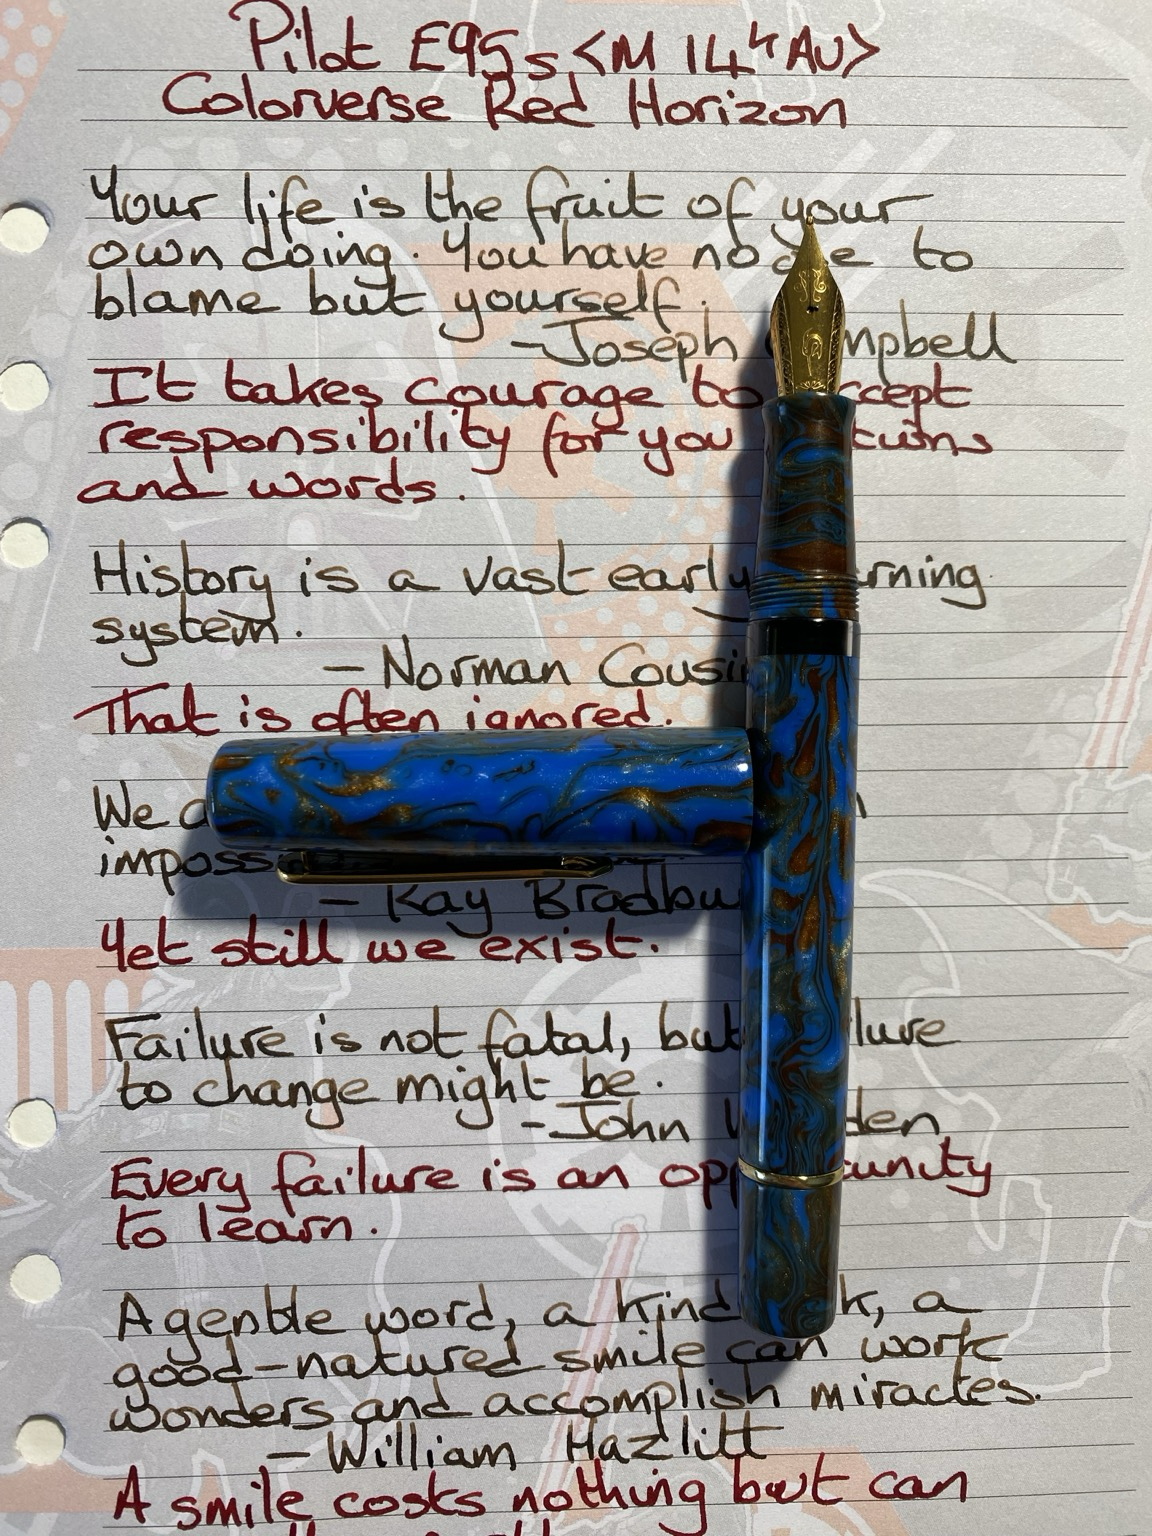 Pilot E95s <M 14k Au>
Colorverse Red Horizon
Your life is the fruit of your
own doing. You have no to
blame but yourself.
- Joseph
It takes courage to
responsibility for you
and words.
History is a vast early
system.
- Norman
That is often ignored.
We
- Ray
Yet still we exist.
Failure is not fatal, but
to change might be.
- John
Every failure is an
to learn.
A gentle word, a kind a
good-natured smile can work
wonders and accomplish miracles.
- William Hazlitt
A smile costs nothing but can